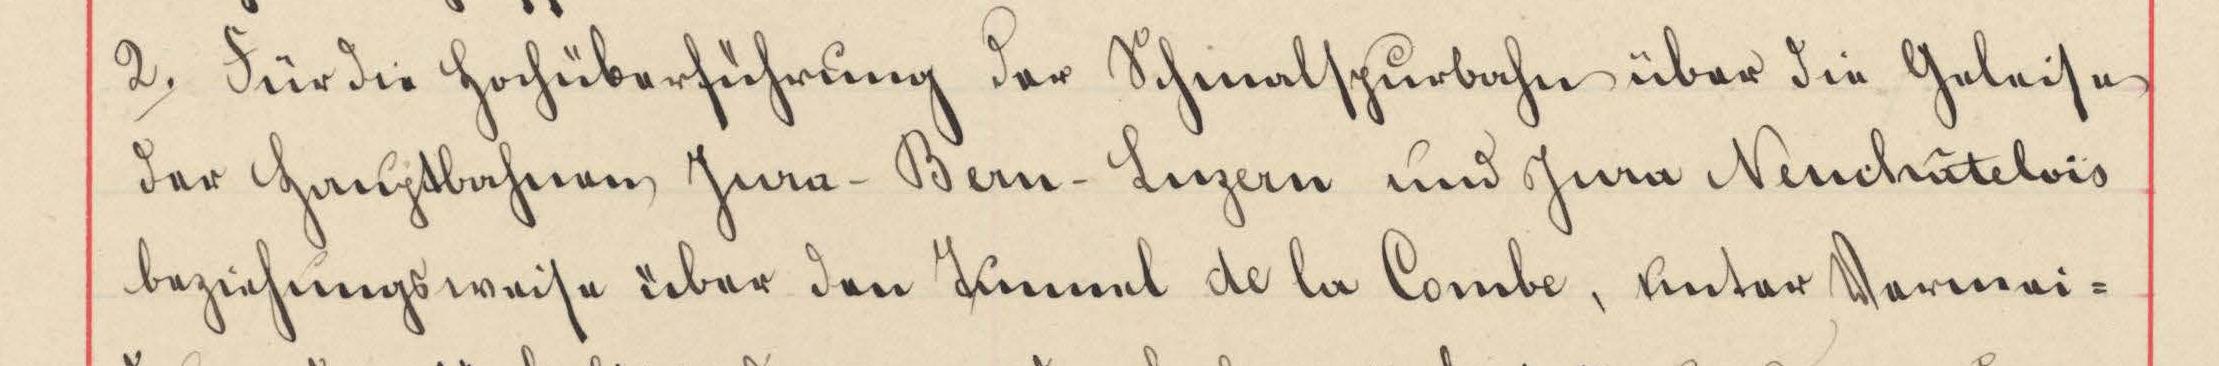 2. Für die Hochüberführung der Schmalspurbahn über die Geleise
der Hauptbahnen Jura-Bern-Luzern und Jura Neuchâtelois
beziehungsweise über den Tunnel de la Combe, unter Vermei=